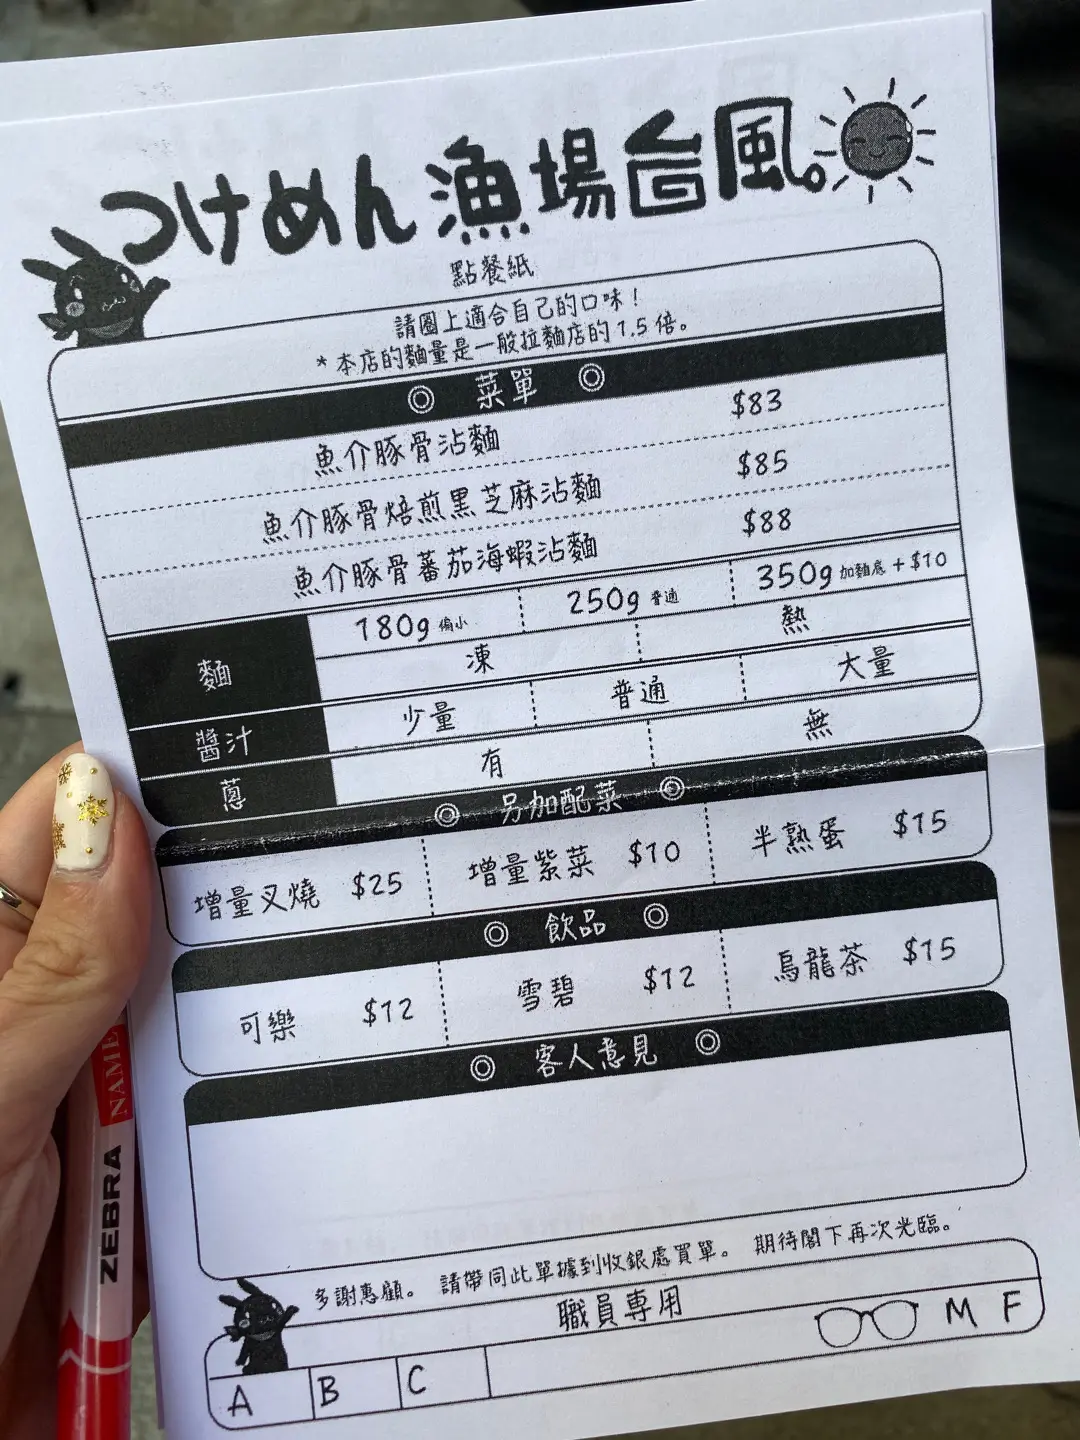 つけめん漁場台風。
點餐紙
請圈上適合自己的口味！
*本店的麵量是一般拉麵店的1.5倍。
◎ 菜單 ◎
魚介豚骨沾麵 $83
魚介豚骨焙煎黑芝麻沾麵 $85
魚介豚骨蕃茄海蝦沾麵 $88
麵 180g 偏小 250g 普通 350g 加麵底+$10
凍 熱
醬汁 少量 普通 大量
蔥 有 無
◎ 另加配菜 ◎
增量叉燒 $25 增量紫菜 $10 半熟蛋 $15
◎ 飲品 ◎
可樂 $12 雪碧 $12 烏龍茶 $15
◎ 客人意見 ◎
多謝惠顧。 請帶同此單據到收銀處買單。 期待閣下再次光臨。
職員專用
A B C M F
ZEBRA NAME